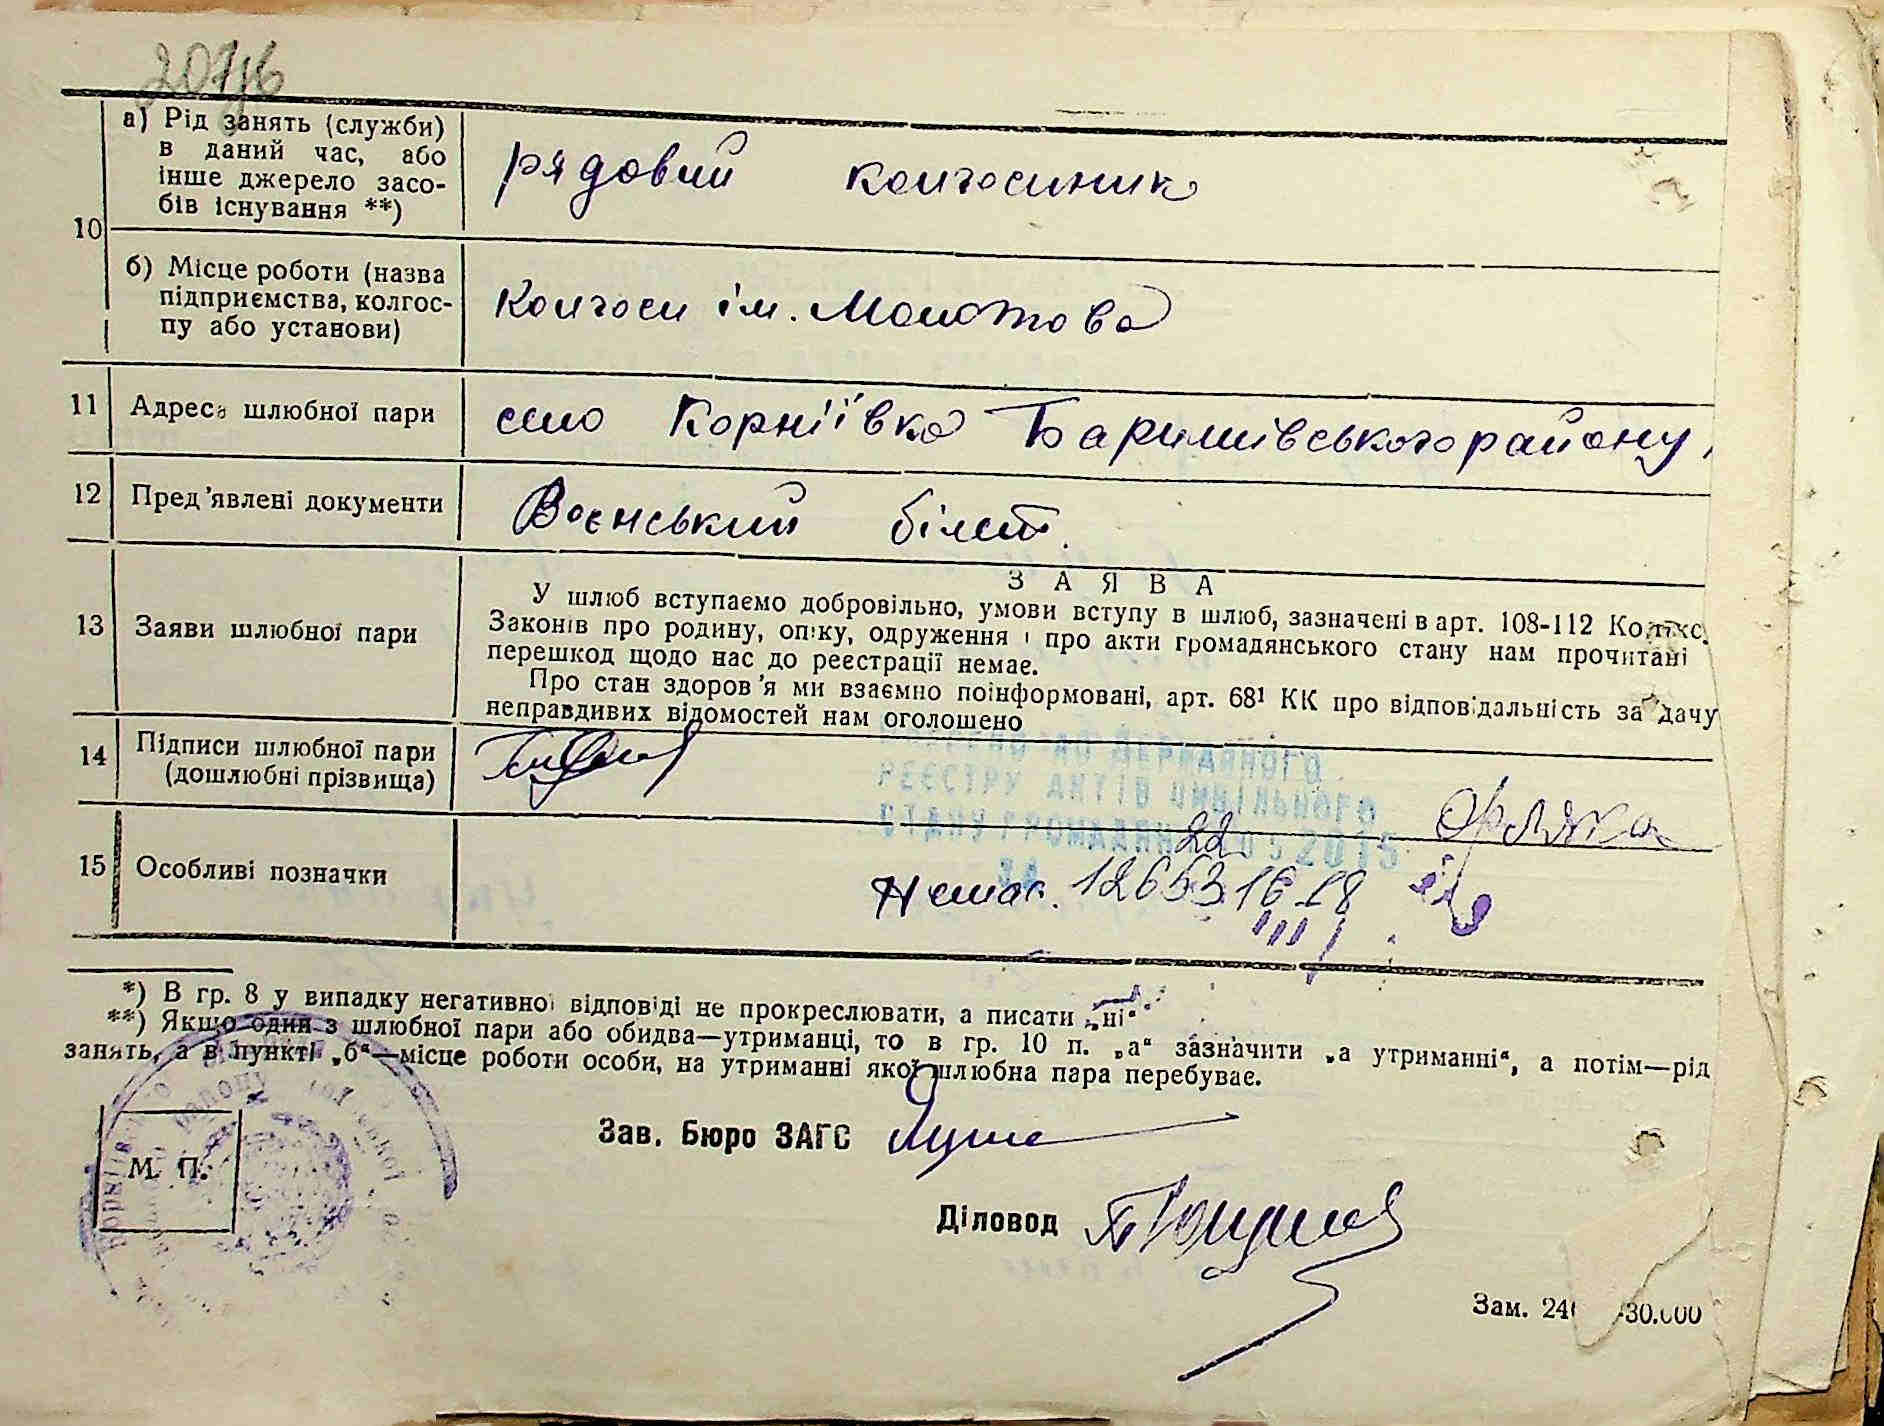 а) Рід занять (служби)
в даний час, або
інше джерело засо-
бів існування **)
рядовий колгоспник
10
б) Місце роботи (назва
підприємства, колгос-
пу або установи)
Колгосп ім. Молотова
11 Адреса шлюбної пари село Корніївка Баришівського району
12 Пред'явлені документи Воєнський білет.
ЗАЯВА
13 Заяви шлюбної пари
У шлюб вступаємо добровільно, умови вступу в шлюб, зазначені в арт. 108-112
Законів про родину, опіку, одруження і про акти громадянського стану нам прочитані
перешкод щодо нас до реєстрації немає.
Про стан здоров'я ми взаємно поінформовані, арт. 68¹ КК про відповідальність за дачу
неправдивих відомостей нам оголошено
14 Підписи шлюбної пари
(дошлюбні прізвища)
ДЕРЖАВНОГО
РЕЄСТРУ АКТІВ ЦИВІЛЬНОГО
СТАНУ ГРОМАДЯН 22 05 2015
15 Особливі позначки
*) В гр. 8 у випадку негативної відповіді не прокреслювати, а писати „ні“
**) Якщо один з шлюбної пари або обидва—утриманці, то в гр. 10 п. „а“ зазначити „а утриманні“, а потім—рід
занять, а в пункті „б“—місце роботи особи, на утриманні якої шлюбна пара перебуває.
М. П.
Зав. Бюро ЗАГС
Діловод
Зам. 24